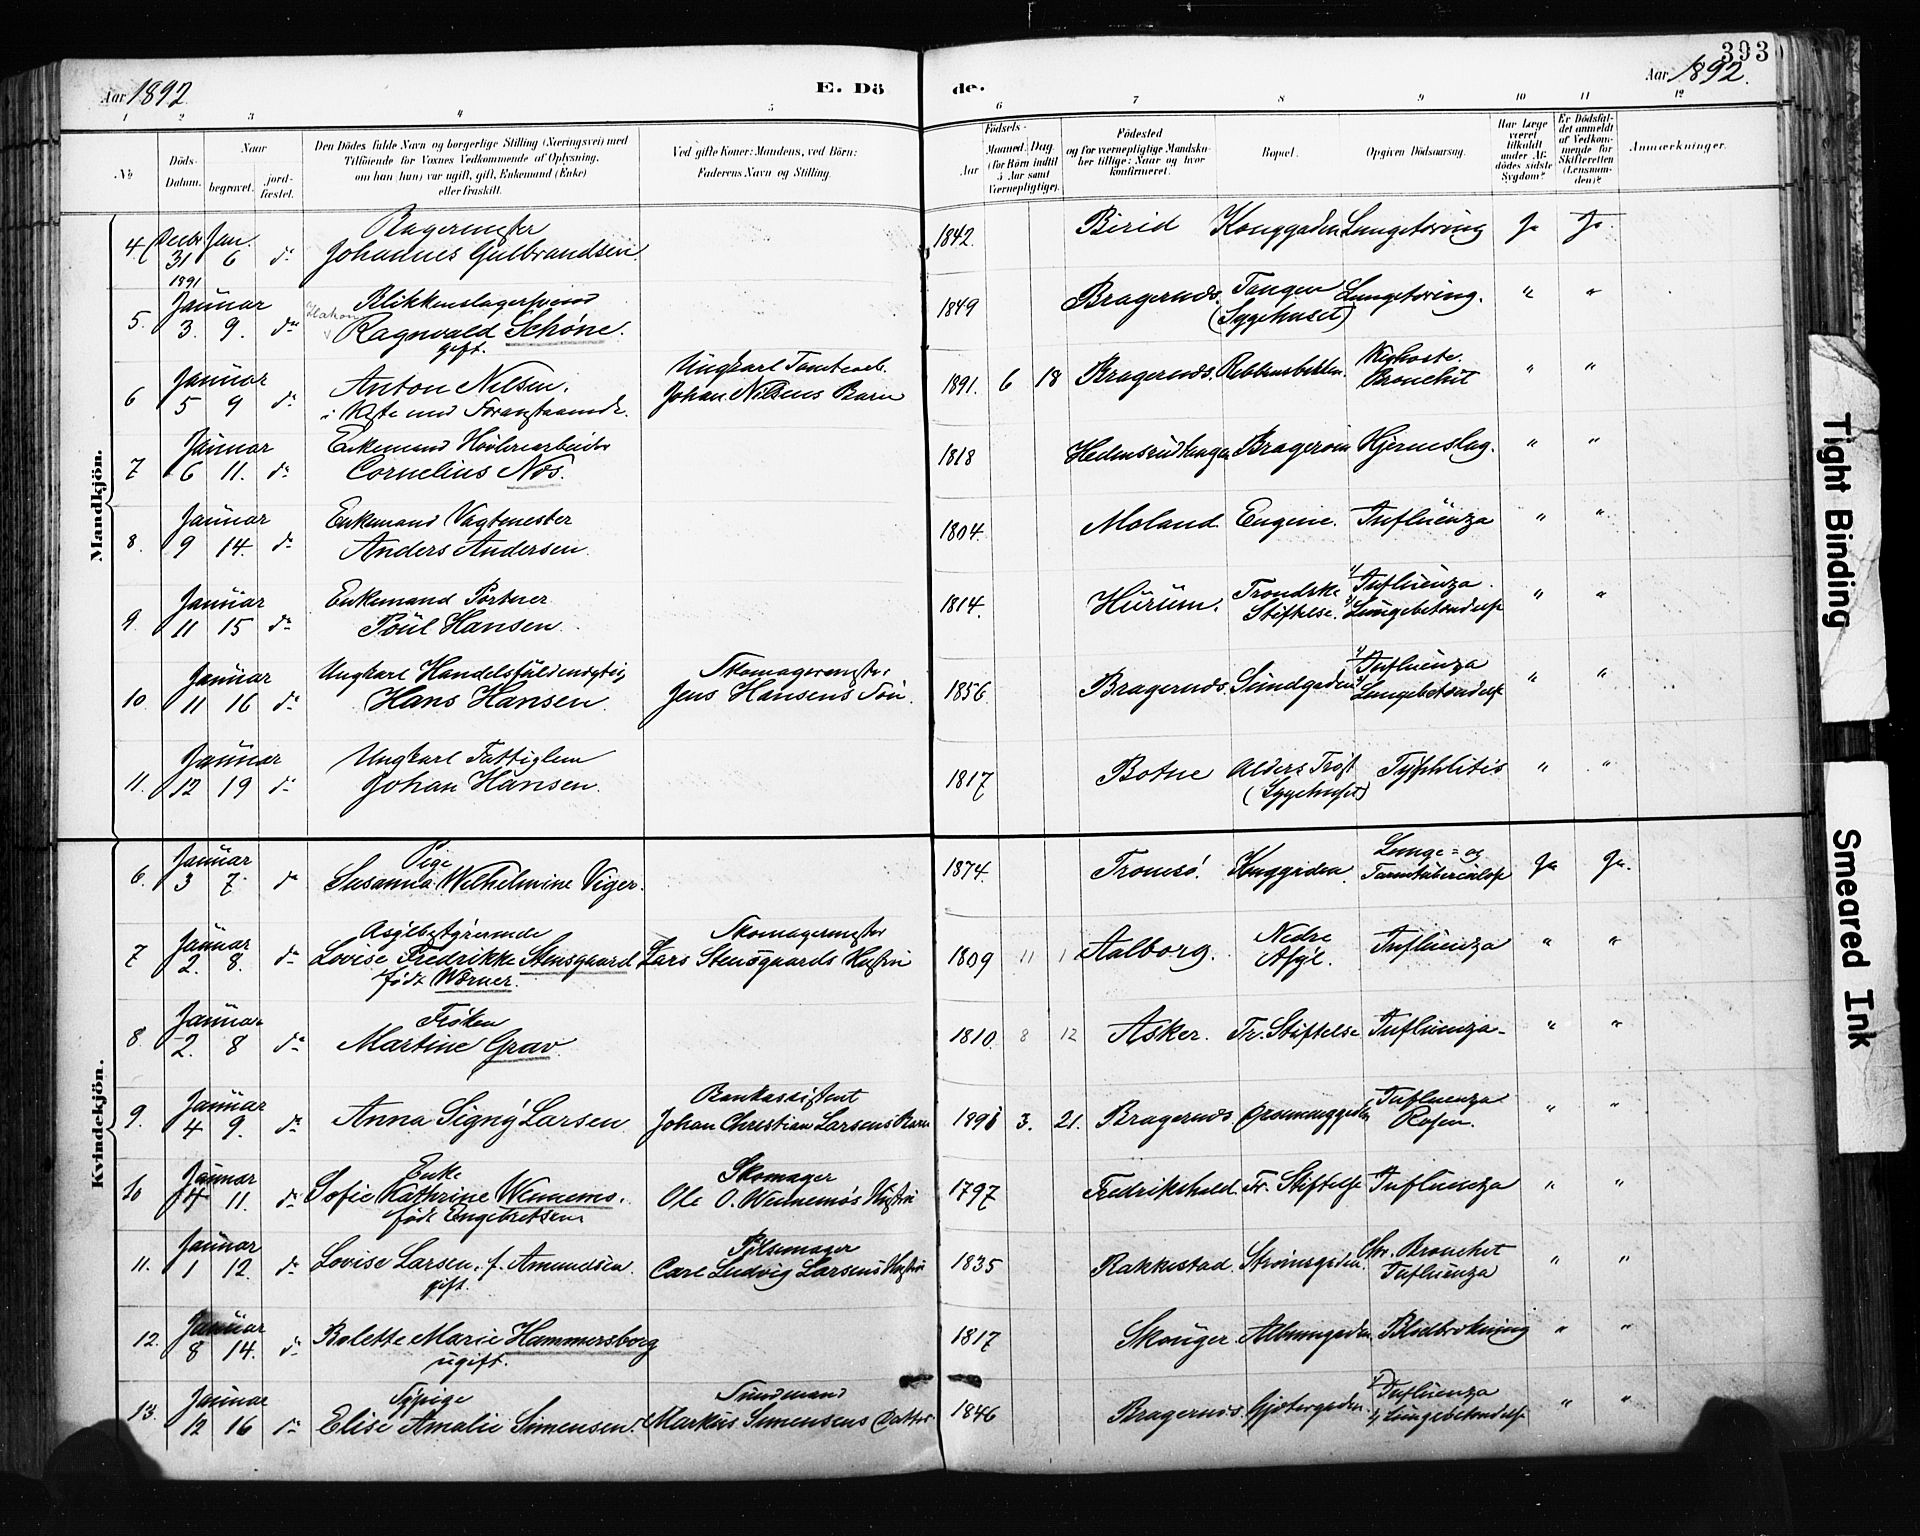 393
Aar 1892
E. Dö
de.
Aar 1892.
1 2 3 4 5 6 7 8 9 10 11 12
No
Döds-Datum.
Naar
begravet.
jord-fæstet.
Den Dödes fulde Navn og borgerlige Stilling (Næringsvei) med
Tilföiende for Voxnes Vedkommende af Oplysning,
om han (hun) var ugift, gift, Enkemand (Enke)
eller fraskilt.
Ved gifte Koner: Mandens, ved Börn:
Faderens Navn og Stilling.
Födsels-
Aar
Maaned. Dag
(for Börn indtil
5 Aar samt
Værnepligtige).
Födested
og for værnepligtige Mandska-
ber tillige: Naar og hvor
konfirmeret.
Bopæl.
Opgiven Dödsaarsag.
Har Læge
været
tilkaldt
under Af-
dödes sidste
Sygdom?
Er Dödsfal-
det anmeldt
af Vedkom-
mende for
Skifteretten
(Lensman-
den)?
Anmærkninger.
Mandkjön.
4 Decbr Jan. Bagermester
31 6 do Johannes Gulbrandsen. 1842. Birid Konggaden Lungetæring Ja Ja
1891
5. Januar Blikkenslagersvend
3. 9. do Hakon Ragnvald Schøne. 1849 Bragernæs. Tangen (Sygehuset) Lungetæring. " "
gift.
6 Januar Anton Nilsen. Ungkarl Tomtearb.
5 9 do Johan Nilsens Barn 1891. 6 18 Bragernæs. Kighoste. Bronchit " "
7 Januar Enkemand Høvleriarbeider
6 11. do Cornelius Næs. 1818 Bragerøen Hjerneslag. " "
8. Januar Enkemand Vagtmester
9 14. do Anders Andersen. 1804. Moland. Eugene. Influenza " "
9. Januar Enkemand Portner
11 15 do Poul Hansen. 1814. Hurum. Trondske Stiftelse. 1) Influenza. 2) Lungebetændelse " "
10. Januar Ungkarl Handelsfuldmægtig Skomagermester
11 16 do Hans Hansen. Jens Hansens Søn. 1856. Bragernæs. Sundgaden 1) Influenza 2) Lungebetændelse " "
11. Januar Ungkarl Fattiglem
12 19 do Johan Hansen. 1817 Botne Alders Trøst (Sygehuset) Typhlitis " "
Kvindekjön.
6. Januar Pige
3 7. do Susanna Wilhelmine Viger. 1874. Tromsö. Konggaden. Lunge- og Tarmtuberculose Ja Ja.
7 Januar Asylbestyrerinde Skomagermester
2. 8. do Lovise Fredrikke Stensgaard Lars Stensgaards Hustru 1809 11 1 Aalborg. Nedre Asyl. Influenza " "
født Wörner.
8. Januar Frøken
2. 8 do Martine Grav. 1810. 8 12 Asker. Tr. Stiftelse Influenza " "
9. Januar Bankassistent
4 9. do Anna Signy Larsen Johan Christian Larsens Barn 1891 3. 21. Bragernæs Influenza Rosen. " "
10 Januar Enke Skomager
4 11. do Sofie Kathrine Wennemo. Ole O. Wennemos Hustru 1797 Fredrikshald. Tr. Stiftelse Influenza " "
født Engebretsen
11. Januar Pølsemager
1 12. do Lovise Larsen, f. Amundsen. Carl Ludvig Larsens Hustru 1835 Rakkestad. Strømsgaden. Chr. Bronchit Influenza " "
gift.
12. Januar
8 14. do Bolette Marie Hammersborg 1817 Skouger Albumsgaden Blodbrækning " "
ugift.
13. Januar Sypige Sundmand
12 16 do Elise Amalie Simensen. Markus Simensens Datter 1846 Bragernæs. Gjætergaden. 1) Influenza 2) Lungebetændelse " "
Tight Binding
Smeared Ink